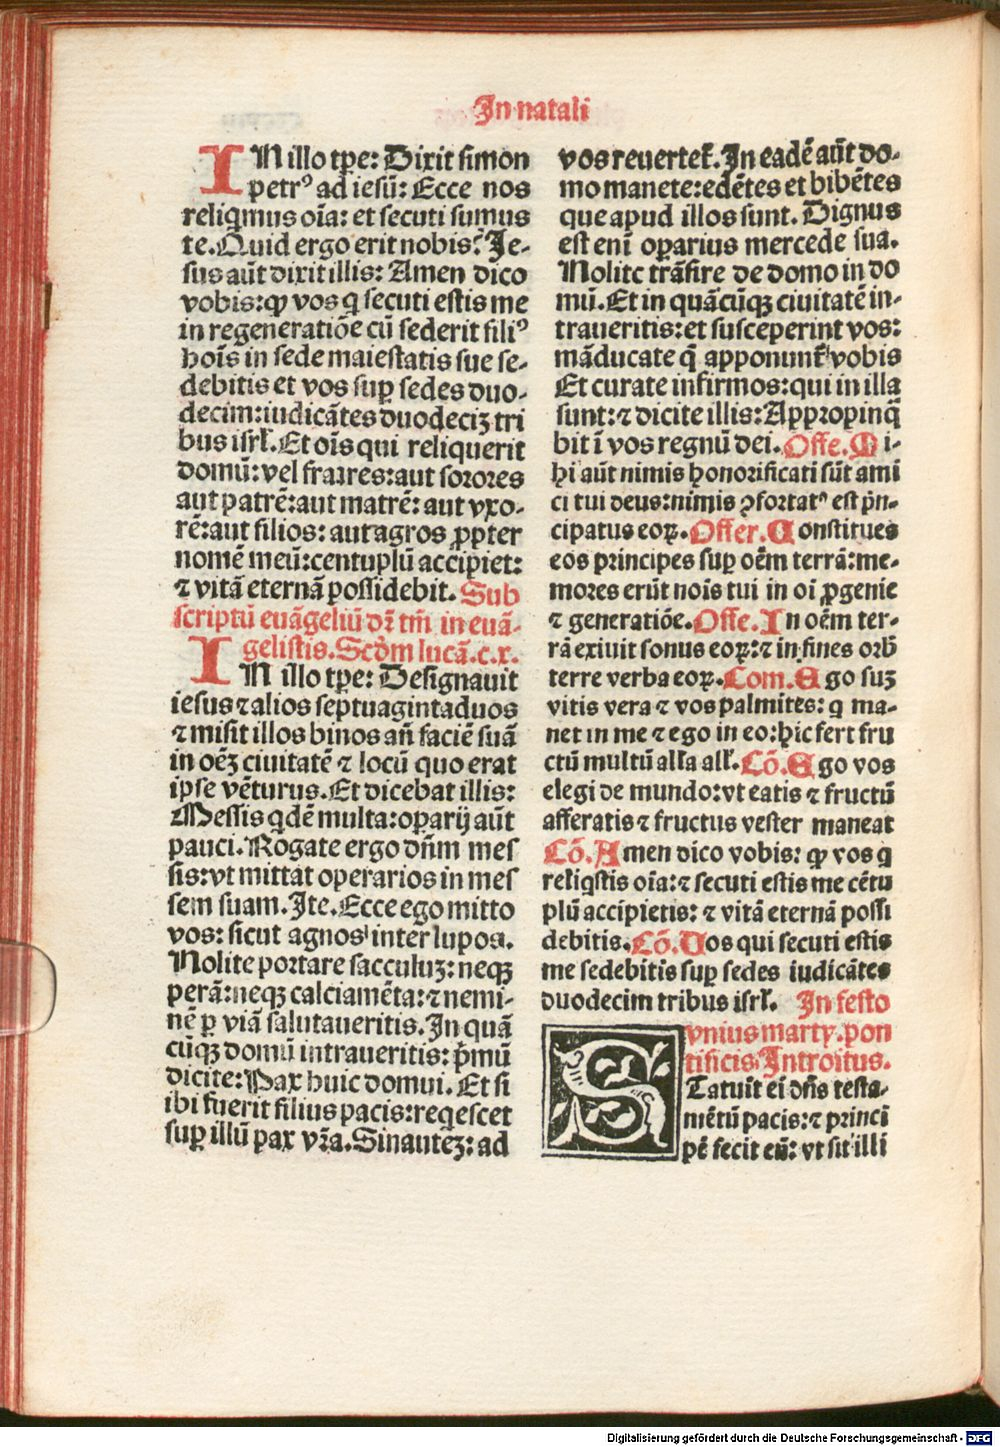 In natali
IN illo tp̄e: Dixit simon
petrꝰ ad iesū: Ecce nos
reliqmus oīa: et secuti sumus
te. Quid ergo erit nobis? Je-
sus aūt dixit illis: Amen dico
vobis: ꝙ vos q secuti estis me
in regeneratiōe cū sederit filiꝰ
hoīs in sede maiestatis sue se-
debitis et vos suꝑ sedes duo-
decim: iudicātes duodeciz tri
bus isrl̄. Et oīs qui reliquerit
domū: vel fratres: aut sorores
aut patrē: aut matrē: aut vxo-
rē: aut filios: aut agros ꝓpter
nomē meū: centuplū accipiet:
⁊ vitā eternā possidebit. Sub
scriptū euāgeliū dr̄ tm̄ in euā-
gelistis. Scd̄m lucā. c. x.
IN illo tp̄e: Designauit
iesus ⁊ alios septuagintaduos
⁊ misit illos binos an̄ faciē suā
in oēz ciuitatē ⁊ locū quo erat
ipse vēturus. Et dicebat illis:
Messis qdē multa: oꝑarij aūt
pauci. Rogate ergo dn̄m mes
sis: vt mittat operarios in mes
sem suam. Ite. Ecce ego mitto
vos: sicut agnos inter lupos.
Nolite portare sacculuz: neqꝫ
perā: neqꝫ calciamēta: ⁊ nemi-
nē ꝑ viā salutaueritis. In quā
cūqꝫ domū intraueritis: p̄mū
dicite: Pax huic domui. Et si
ibi fuerit filius pacis: reqescet
suꝑ illū pax vr̄a. Sinautez: ad
vos reuertet᷑. In eadē aūt do-
mo manete: edētes et bibētes
que apud illos sunt. Dignus
est enī oꝑarius mercede sua.
Nolite trāsire de domo in do
mū. Et in quācūqꝫ ciuitatē in-
traueritis: et susceperint vos:
māducate q̄ apponunt᷑ vobis
Et curate infirmos: qui in illa
sunt: ⁊ dicite illis: Appropinq̄
bit ī vos regnū dei. Offe. Mi-
hi aūt nimis honorificati sūt ami
ci tui deus: nimis ꝯfortatꝰ est p̄n-
cipatus eoꝝ. Offer. Constitues
eos principes suꝑ oēm terrā: me-
mores erūt nois tui in oi ꝓgenie
⁊ generatiōe. Offe. In oēm ter-
rā exiuit sonus eoꝝ: ⁊ in fines orb̄
terre verba eoꝝ. Com. Ego suz
vitis vera ⁊ vos palmites: q ma-
net in me ⁊ ego in eo: hic fert fru
ctū multū all̄a all̄. Cō. Ego vos
elegi de mundo: vt eatis ⁊ fructū
afferatis ⁊ fructus vester maneat
Cō. Amen dico vobis: ꝙ vos q
reliqstis oīa: ⁊ secuti estis me cētu
plū accipietis: ⁊ vitā eternā possi
debitis. Cō. Vos qui secuti estis
me sedebitis suꝑ sedes iudicātes
duodecim tribus isrl̄. In festo
ynius marty. pon
tificis Introitus.
STatuit ei dn̄s testa-
mētū pacis: ⁊ princi
pē fecit eū: vt sit illi
Digitalisierung gefördert durch die Deutsche Forschungsgemeinschaft - DFG